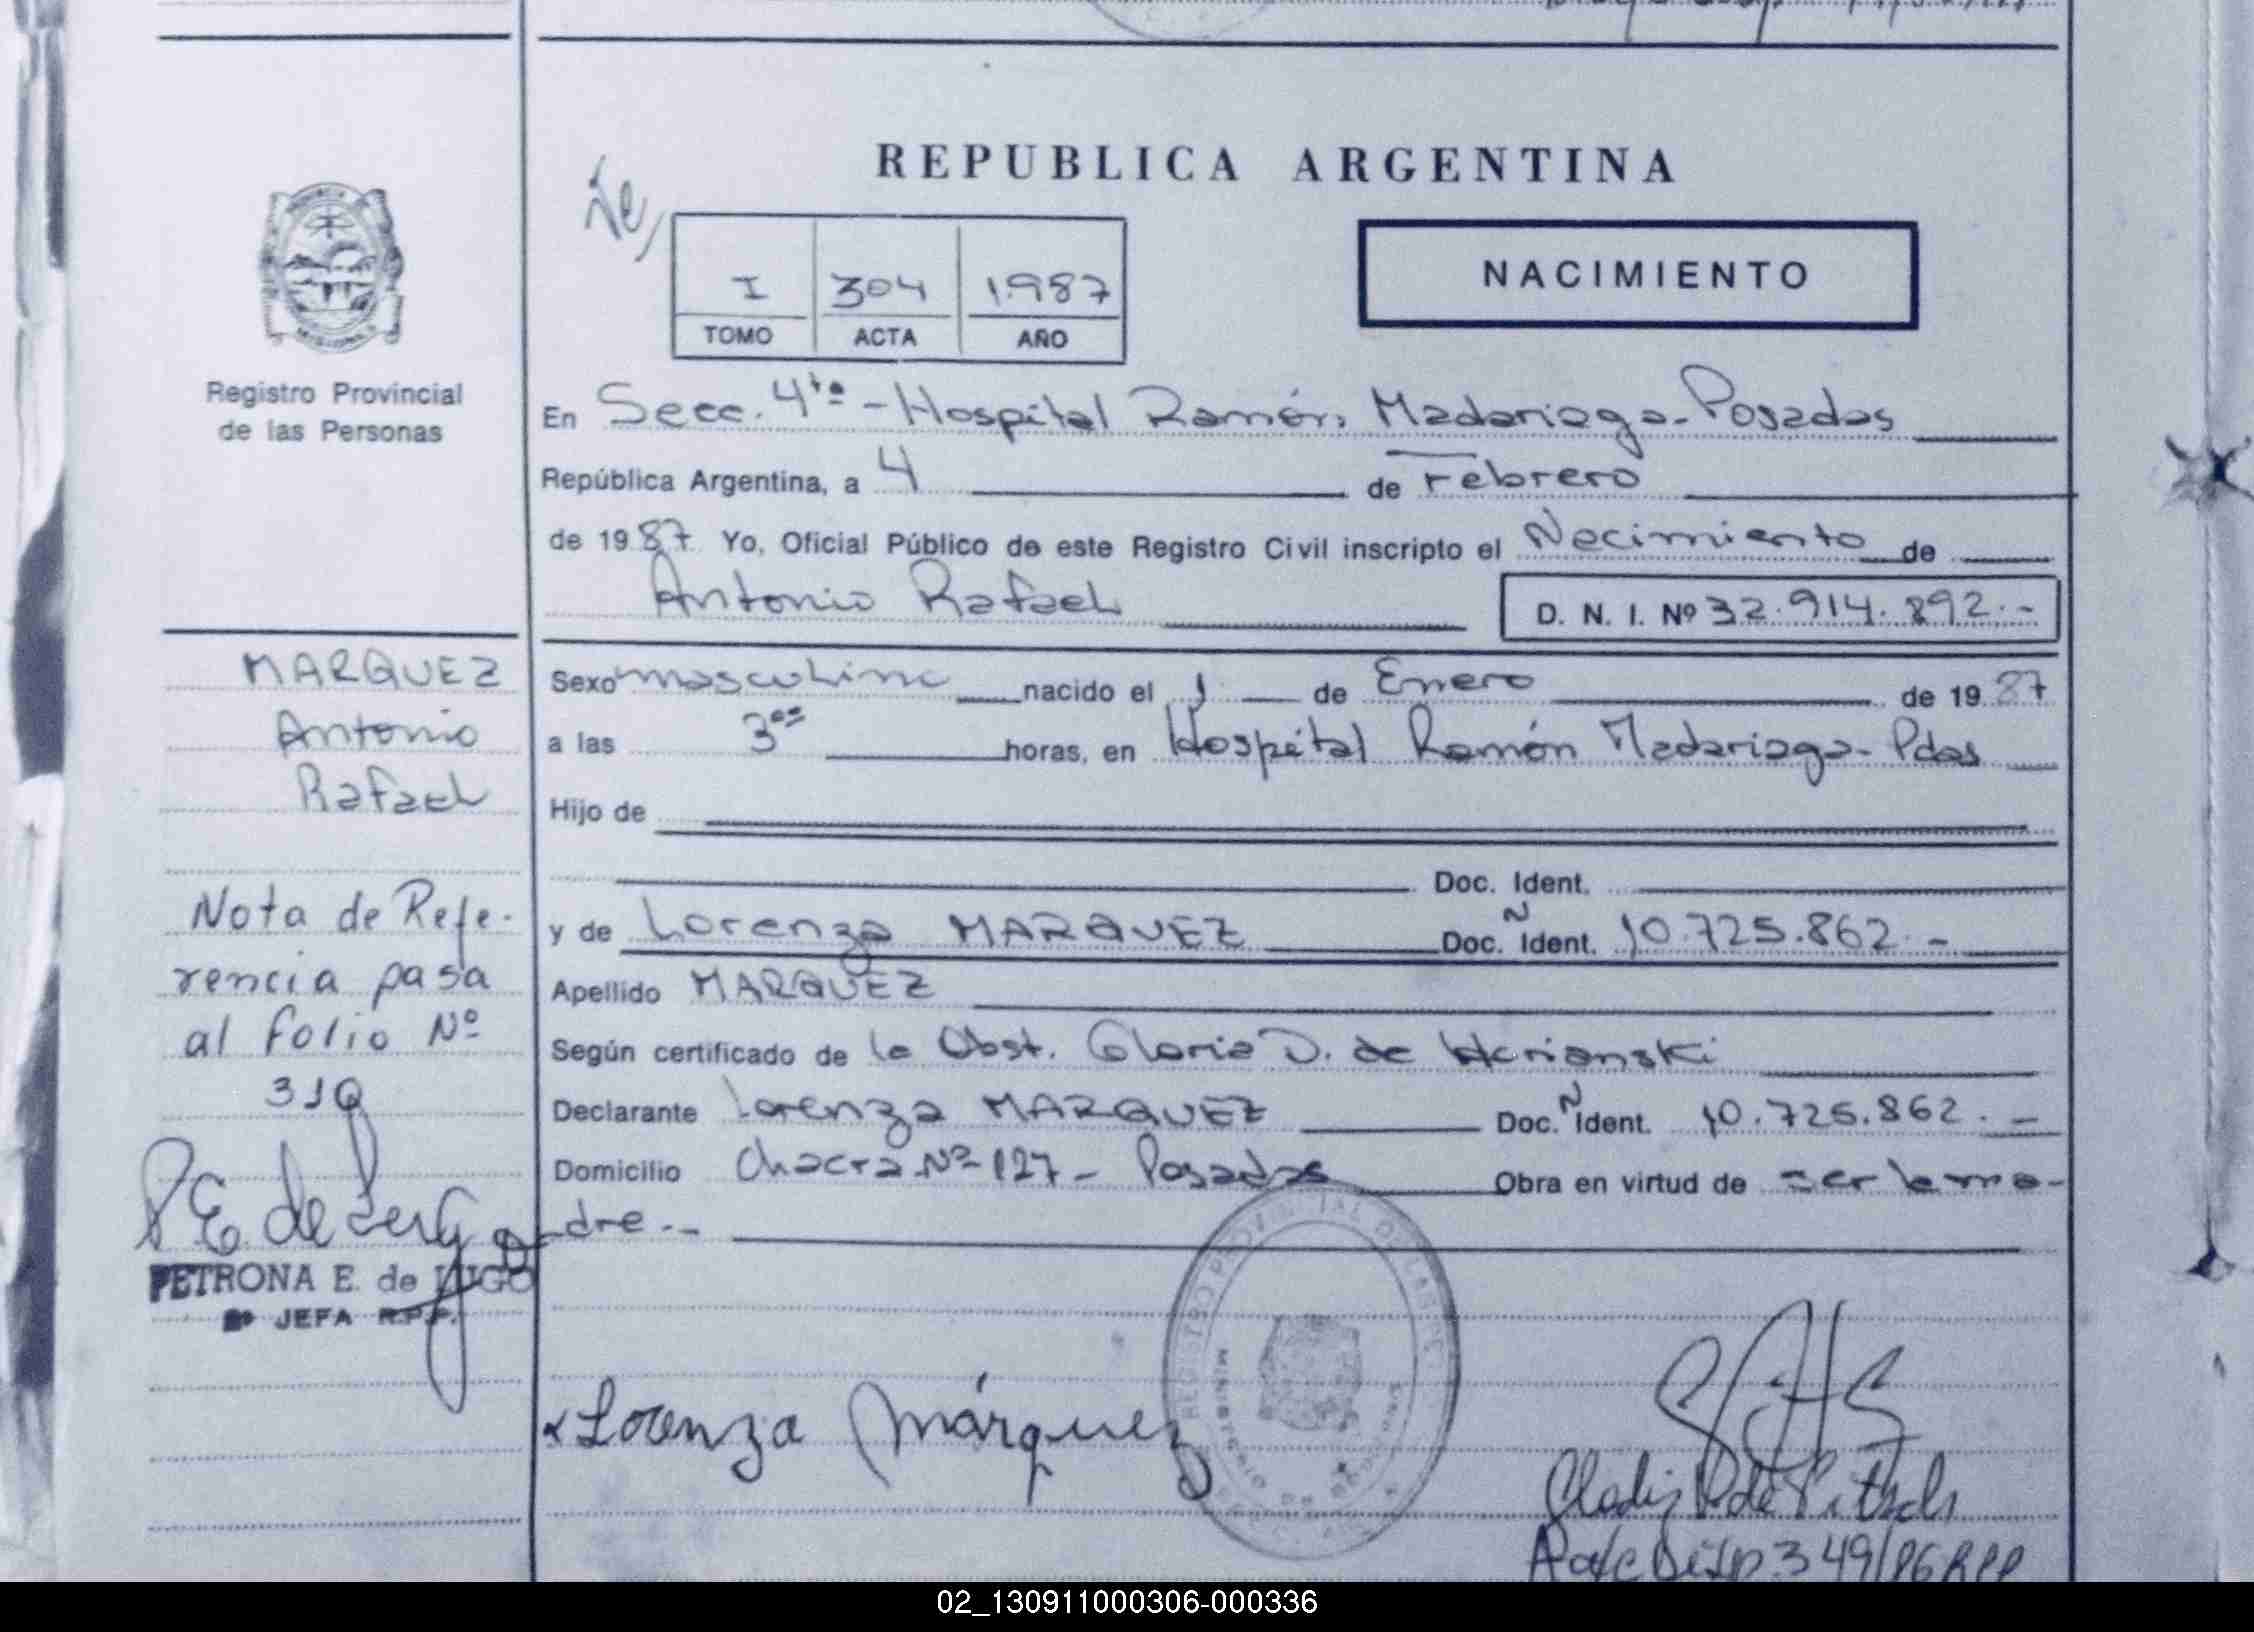 REPUBLICA ARGENTINA
NACIMIENTO
I 304 1987
TOMO ACTA AÑO
Registro Provincial
de las Personas
En Secc. 4ta - Hospital Ramón Madariaga - Posadas
República Argentina, a 4 de Febrero
de 1987 Yo, Oficial Público de este Registro Civil inscripto el Nacimiento de
Antonio Rafael D. N. I. Nº 32.914.892.-
MARQUEZ
Antonio
Rafael
Sexo masculino nacido el 1 de Enero de 1987
a las 3 horas, en Hospital Ramón Madariaga - Pdas
Hijo de
Doc. Ident.
y de Lorenza MARQUEZ Doc. Ident. 10.725.862.-
Apellido MARQUEZ
Según certificado de la Obst. Gloria D. de
Declarante Lorenza MARQUEZ Doc. Ident. 10.725.862.-
Domicilio Chacra Nº 127 - Posadas Obra en virtud de ser la ma-
dre.-
Nota de Refe-
rencia pasa
al folio Nº
310
P E de Lugo
PETRONA E. de LUGO
JEFA R.P.P.
Lorenza Márquez
REGISTRO PROVINCIAL DE LAS PERSONAS
MINISTERIO DE GOBIERNO
02_130911000306-000336